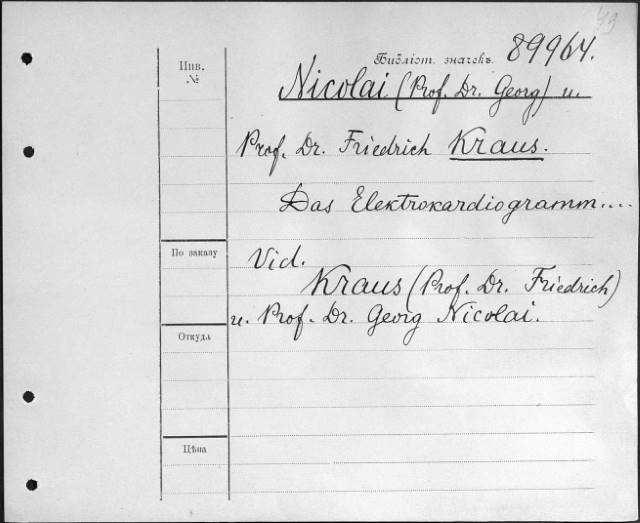 49
Библіот. значекъ. 89964.
Инв.
№
Nicolai (Prof. Dr. Georg) u.
Prof. Dr. Friedrich Kraus.
Das Elektrokardiogramm....
По заказу
Vid.
Kraus (Prof. Dr. Friedrich)
u. Prof. Dr. Georg Nicolai.
Откуда
Цѣна